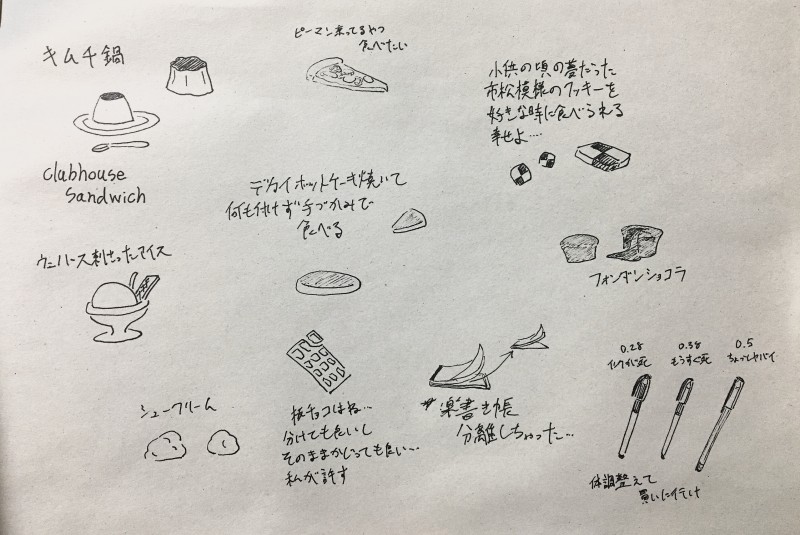 キムチ鍋
clubhouse
sandwich
ピーマン乗ってるやつ
食べたい
小供の頃の夢だった
市松模様のクッキーを
好きな時に食べられる
幸せよ…
デカイホットケーキ焼いて
何も付けず手づかみで
食べる
ウエハース刺さったアイス
フォンダンショコラ
シュークリーム
板チョコはね…
分けても良いし
そのままかじっても良い…
私が許す
楽書き帳
分離しちゃった…
0.28
インクが死
0.38
もうすぐ死
0.5
ちょっとヤバイ
体調整えて
買いに行け